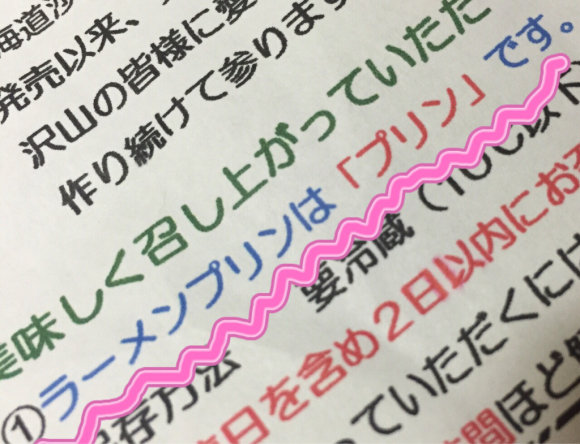 北海道
発売以来、
沢山の皆様に愛
作り続けて参ります
美味しく召し上がっていただ
①ラーメンプリンは「プリン」です。
保存方法 要冷蔵(10℃以下
日を含め2日以内にお
っていただくには
間ほど